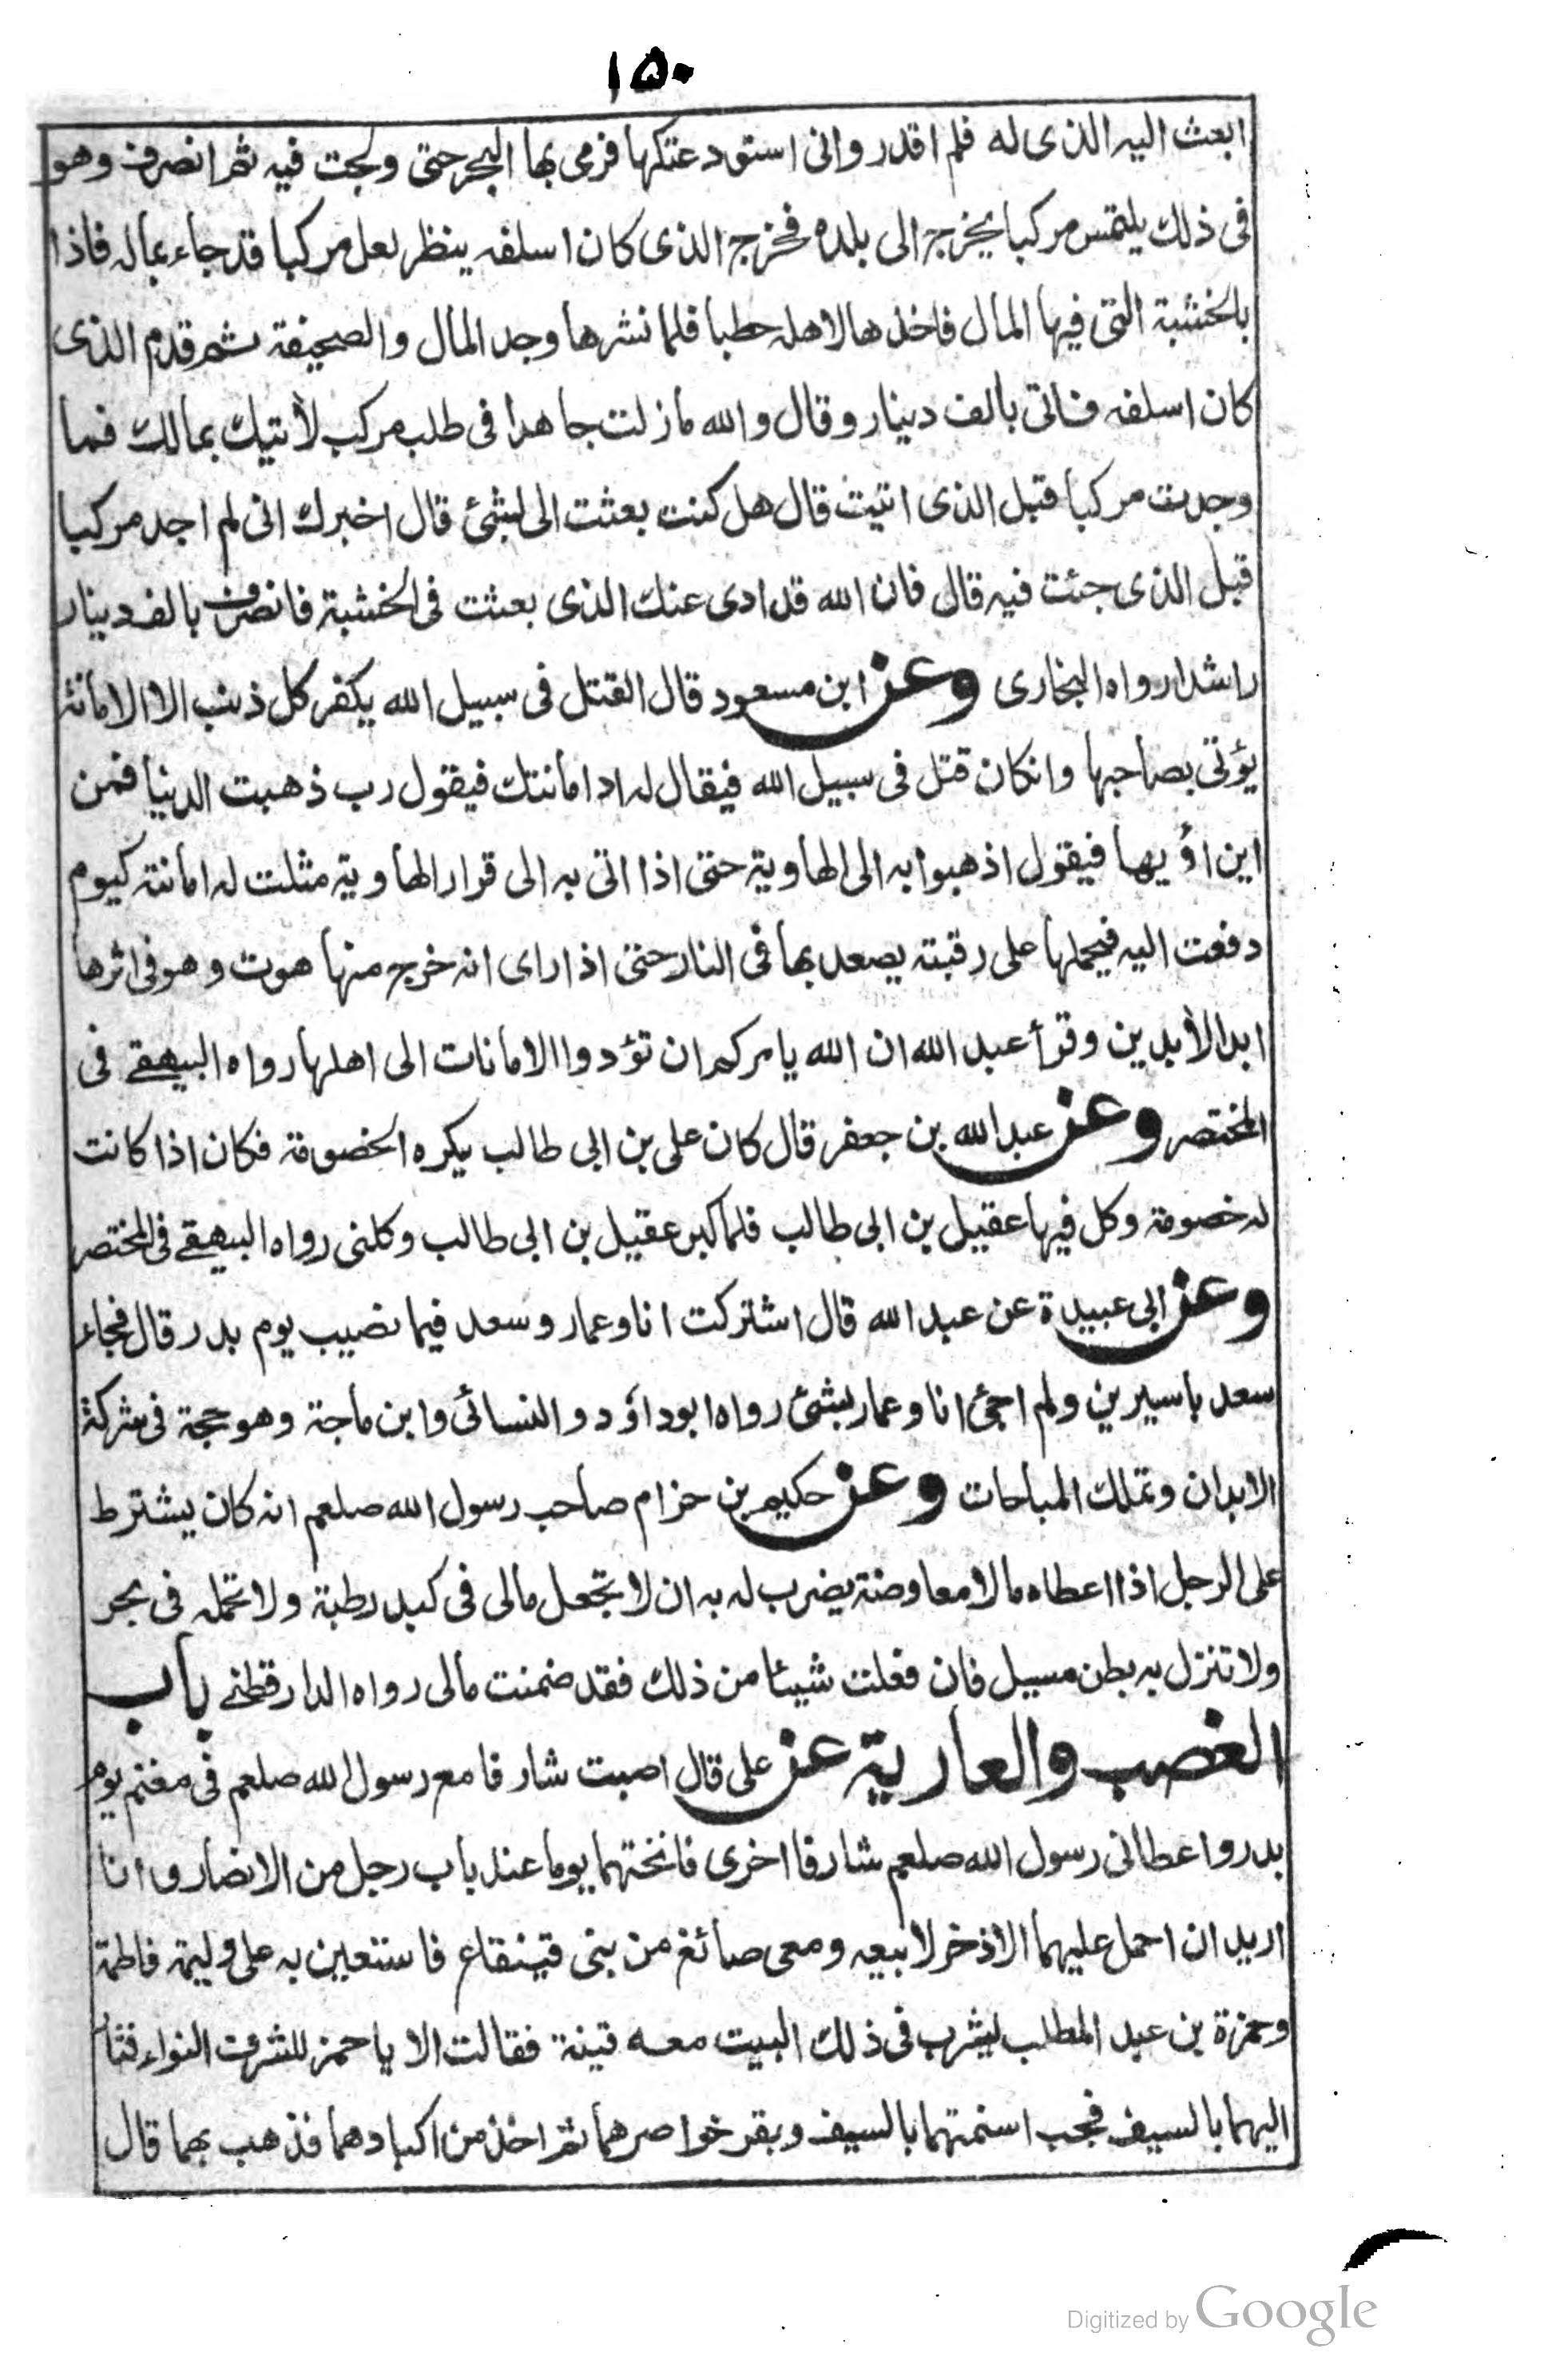 ١٥٠
ابعث اليه الذى له فلم اقدر وانى استودعتكها فرمى بها البحر حتى ولجت فيه ثم انصرف وهو
فى ذلك يلتمس مركبا يخرج الى بلده فخرج الذى كان اسلفه ينظر لعل مركبا قد جاء بماله فاذا
بالخشبة التى فيها المال فاخذها لاهله حطبا فلما نشرها وجد المال والصحيفة ثم قدم الذى
كان اسلفه فاتى بالف دينار وقال والله مازلت جاهدا فى طلب مركب لأتيك بمالك فما
وجدت مركبا قبل الذى اتيت قال هل كنت بعثت الى بشئ قال اخبرك انى لم اجد مركبا
قبل الذى جئت فيه قال فان الله قد ادى عنك الذى بعثت فى الخشبة فانصرف بالف دينار
راشدا رواه البخارى وعن ابن مسعود قال القتل فى سبيل الله يكفر كل ذنب الا الامانة
يؤتى بصاحبها وانكان قتل فى سبيل الله فيقال له اد امانتك فيقول رب ذهبت الدنيا فمن
اين اؤيها فيقول اذهبوا به الى الهاوية حتى اذا اتى به الى قرار الهاوية مثلت له امانته كيوم
دفعت اليه فيحملها على رقبته يصعد بها فى النار حتى اذا راى انه خرج منها هوت وهو فى اثرها
ابد الأبدين وقرأ عبد الله ان الله يامركم ان تؤدوا الامانات الى اهلها رواه البيهقے فى
المختصر وعن عبد الله بن جعفر قال كان على بن ابى طالب يكره الخصومة فكان اذا كانت
له خصومة وكل فيها عقيل بن ابى طالب فلما كبر عقيل بن ابى طالب وكلنى رواه البيهقے فى المختصر
وعن ابى عبيدة عن عبد الله قال اشتركت انا وعمار وسعد فيما نصيب يوم بدر قال فجاء
سعد باسيرين ولم اجئ انا وعمار بشئ رواه ابوداؤد والنسائى وابن ماجة وهو حجة فى شركة
الابدان وتملك المباحات وعن حكيم بن حزام صاحب رسول الله صلعم انه كان يشترط
على الرجل اذا اعطاه مالا معاوضة يضرب له به ان لا تجعل مالى فى كبد رطبة ولا تحمله فى بحر
ولا تنزل به بطن مسيل فان فعلت شيئا من ذلك فقد ضمنت مالى رواه الدارقطنے باب
الغصب والعارية عن على قال اصبت شارفا مع رسول الله صلعم فى مغنم يوم
بدر واعطانى رسول الله صلعم شارفا اخرى فانختهما يوما عند باب رجل من الانصار وانا
اريد ان احمل عليهما الاذخر لابيعه ومعى صائغ من بنى قينقاع فاستعين به على وليمة فاطمة
وحمزة بن عبد المطلب يشرب فى ذلك البيت معه قينة فقالت الا يا حمز للشرف النواء فثار
اليهما بالسيف فجب اسنمتهما بالسيف وبقر خواصرهما ثم اخذ من اكبادهما فذهب بهما قال
Digitized by Google